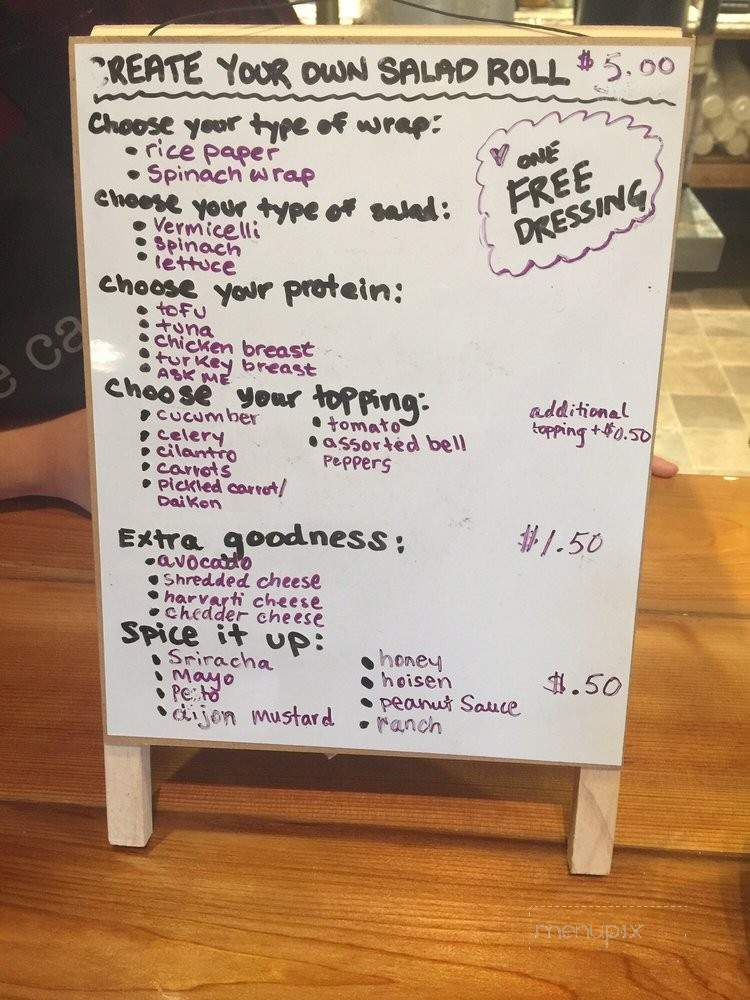 CREATE YOUR OWN SALAD ROLL $5.00
Choose your type of wrap:
• rice paper
• Spinach wrap
ONE
FREE
DRESSING
Choose your type of salad:
• Vermicelli
• spinach
• lettuce
Choose your protein:
• tofu
• tuna
• chicken breast
• turkey breast
• ASK ME
Choose your topping:
• cucumber
• celery
• cilantro
• carrots
• pickled carrot/
Daikon
• tomato
• assorted bell
peppers
additional
topping +$0.50
Extra goodness: $1.50
• avocado
• Shredded cheese
• harvarti cheese
• chedder cheese
Spice it up:
• Sriracha
• Mayo
• Pesto
• dijon mustard
• honey
• hoisen
• peanut Sauce
• ranch
$.50
e ca
menupix